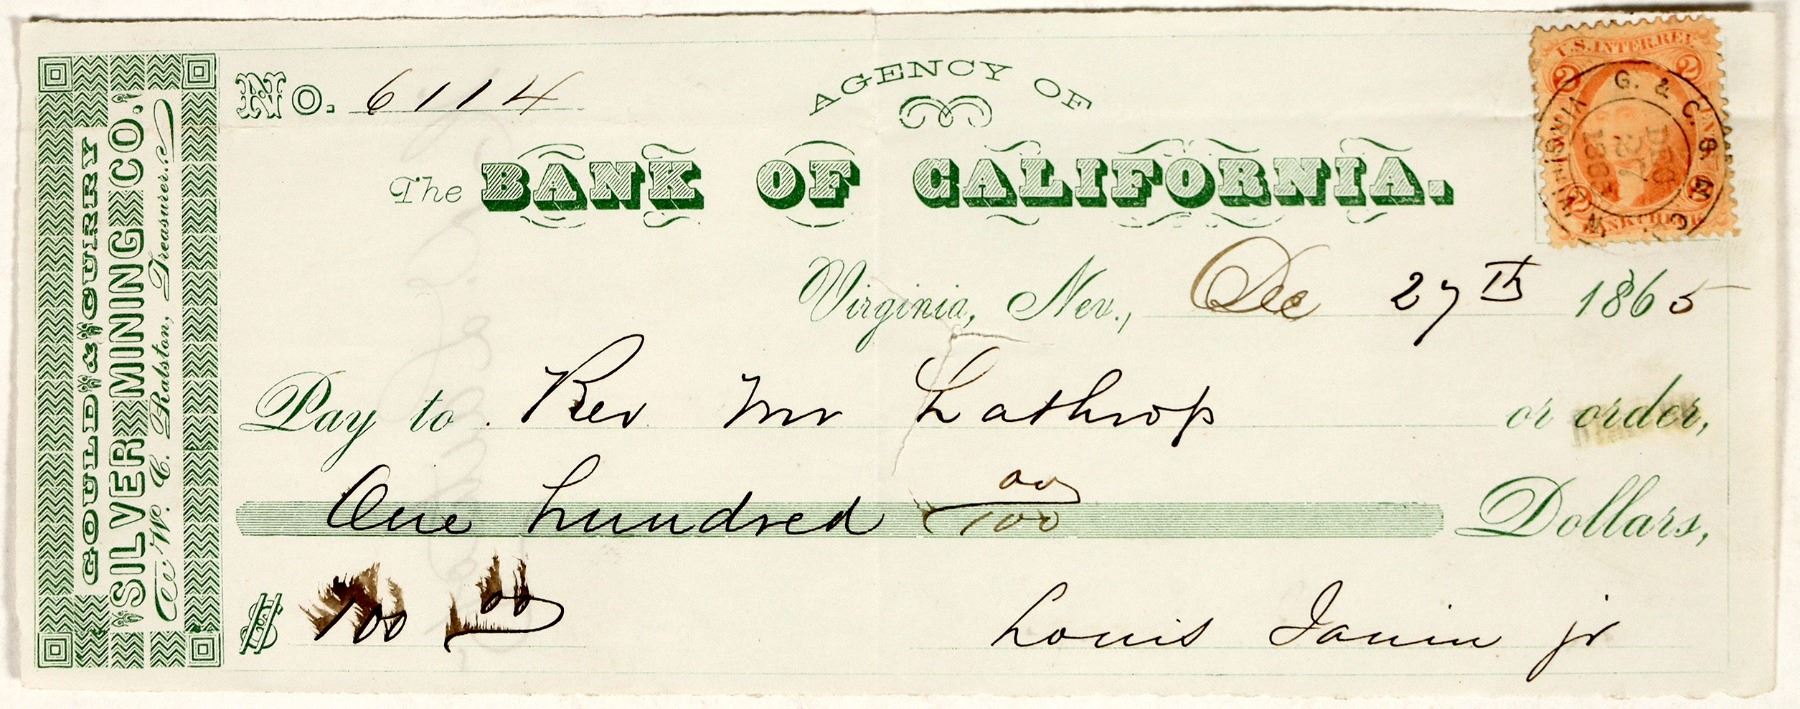 GOULD & CURRY
SILVER MINING CO.
W. C. Ralston, Treasurer.
No. 6114
AGENCY OF
The BANK OF CALIFORNIA.
Virginia, Nev., Dec 27th 1865
Pay to Rev Mr Lathrop or order,
One hundred 00/100 Dollars,
$ 100 00
Louis Janin jr
U.S. INTER. REV.
2 2
G. & C. S. M. CO.
VIRGINIA
DEC
27